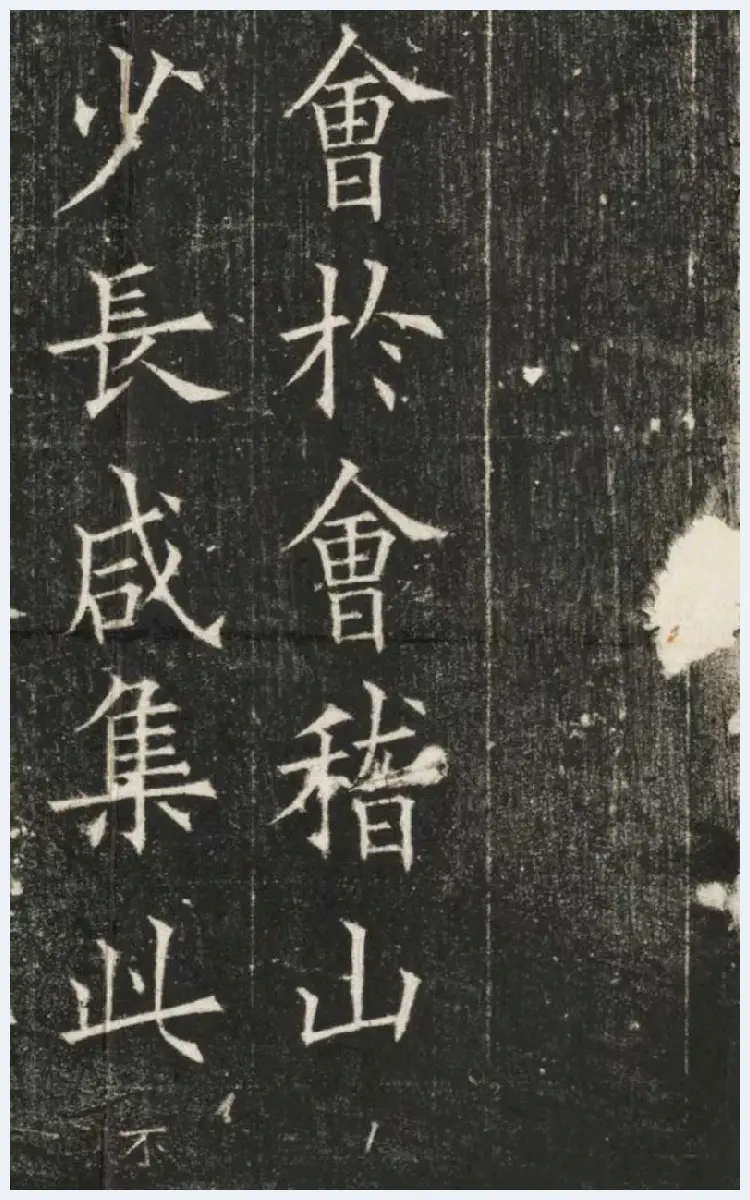 會於會稽山
少長咸集此
不